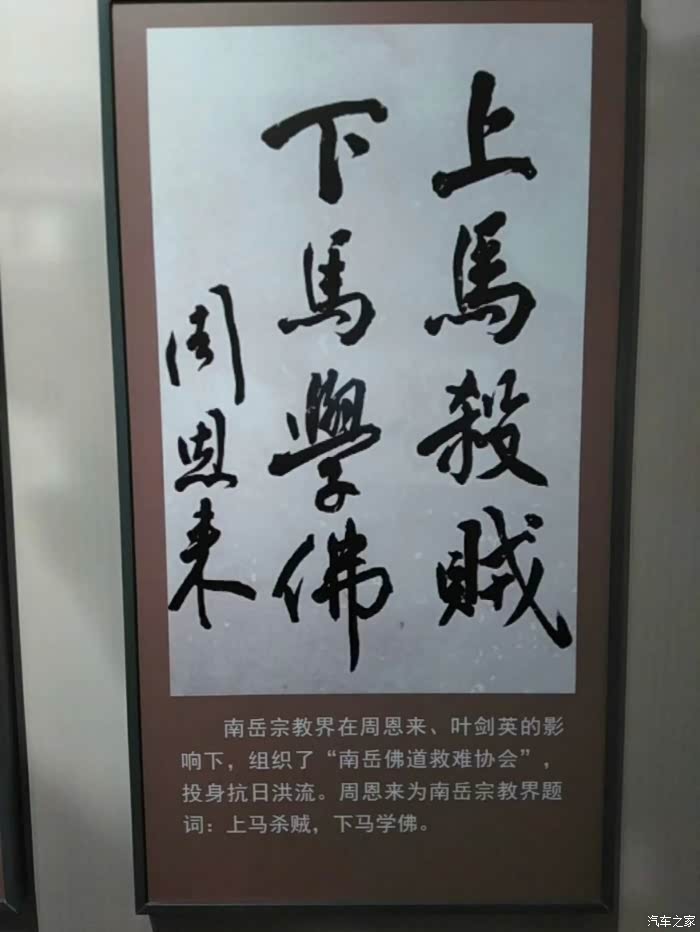 上馬殺賊
下馬學佛
周恩来
南岳宗教界在周恩来、叶剑英的影
响下，组织了“南岳佛道救难协会”，
投身抗日洪流。周恩来为南岳宗教界题
词：上马杀贼，下马学佛。
汽车之家